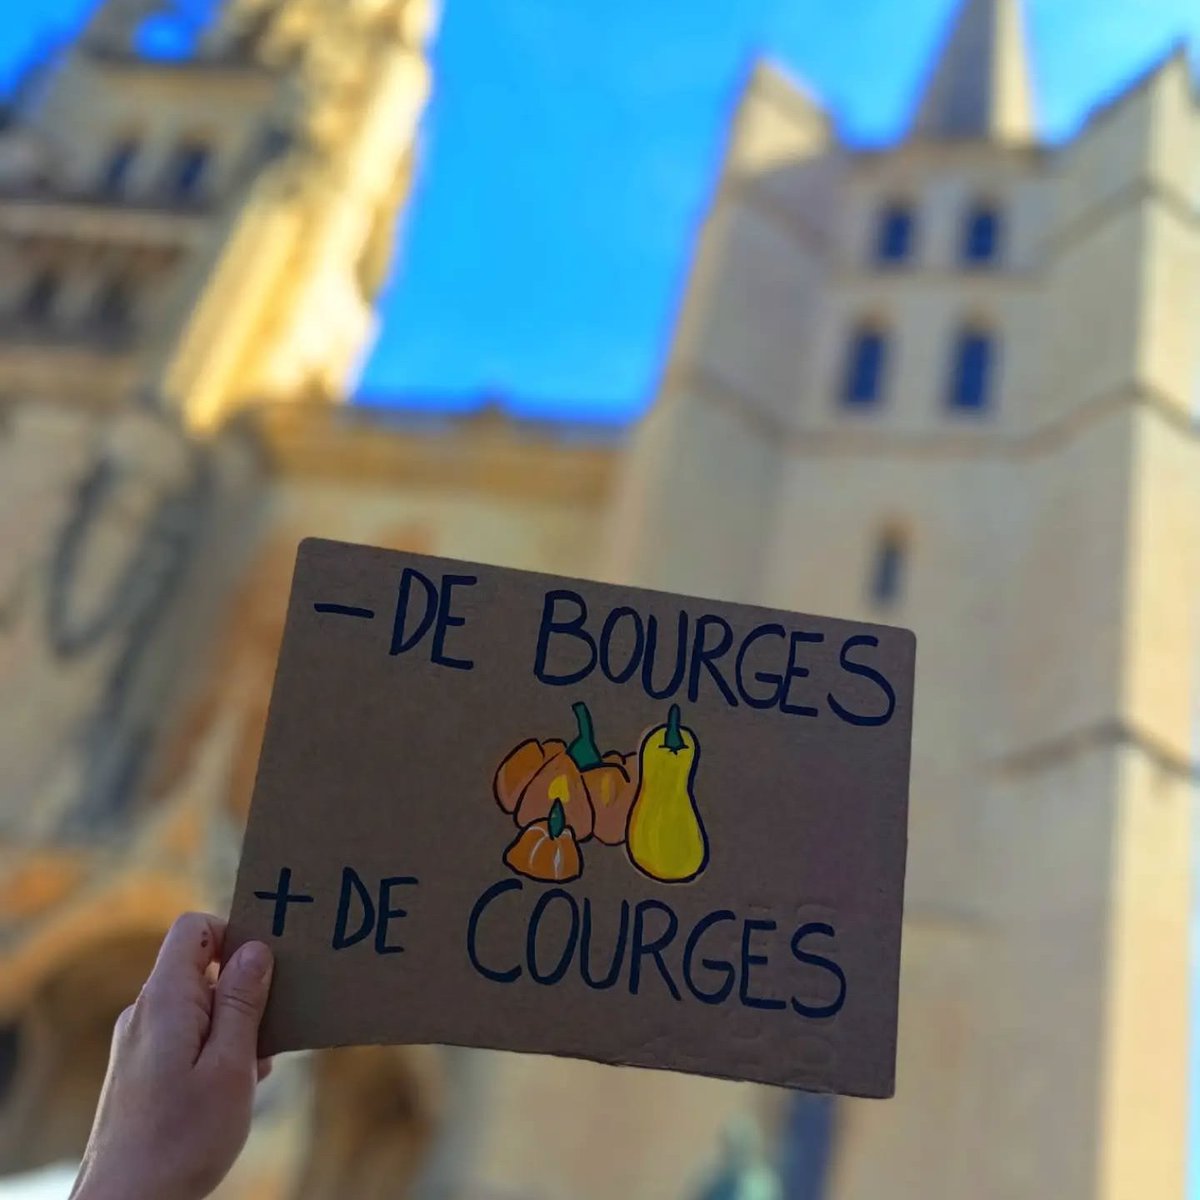 - DE BOURGES
+ DE COURGES